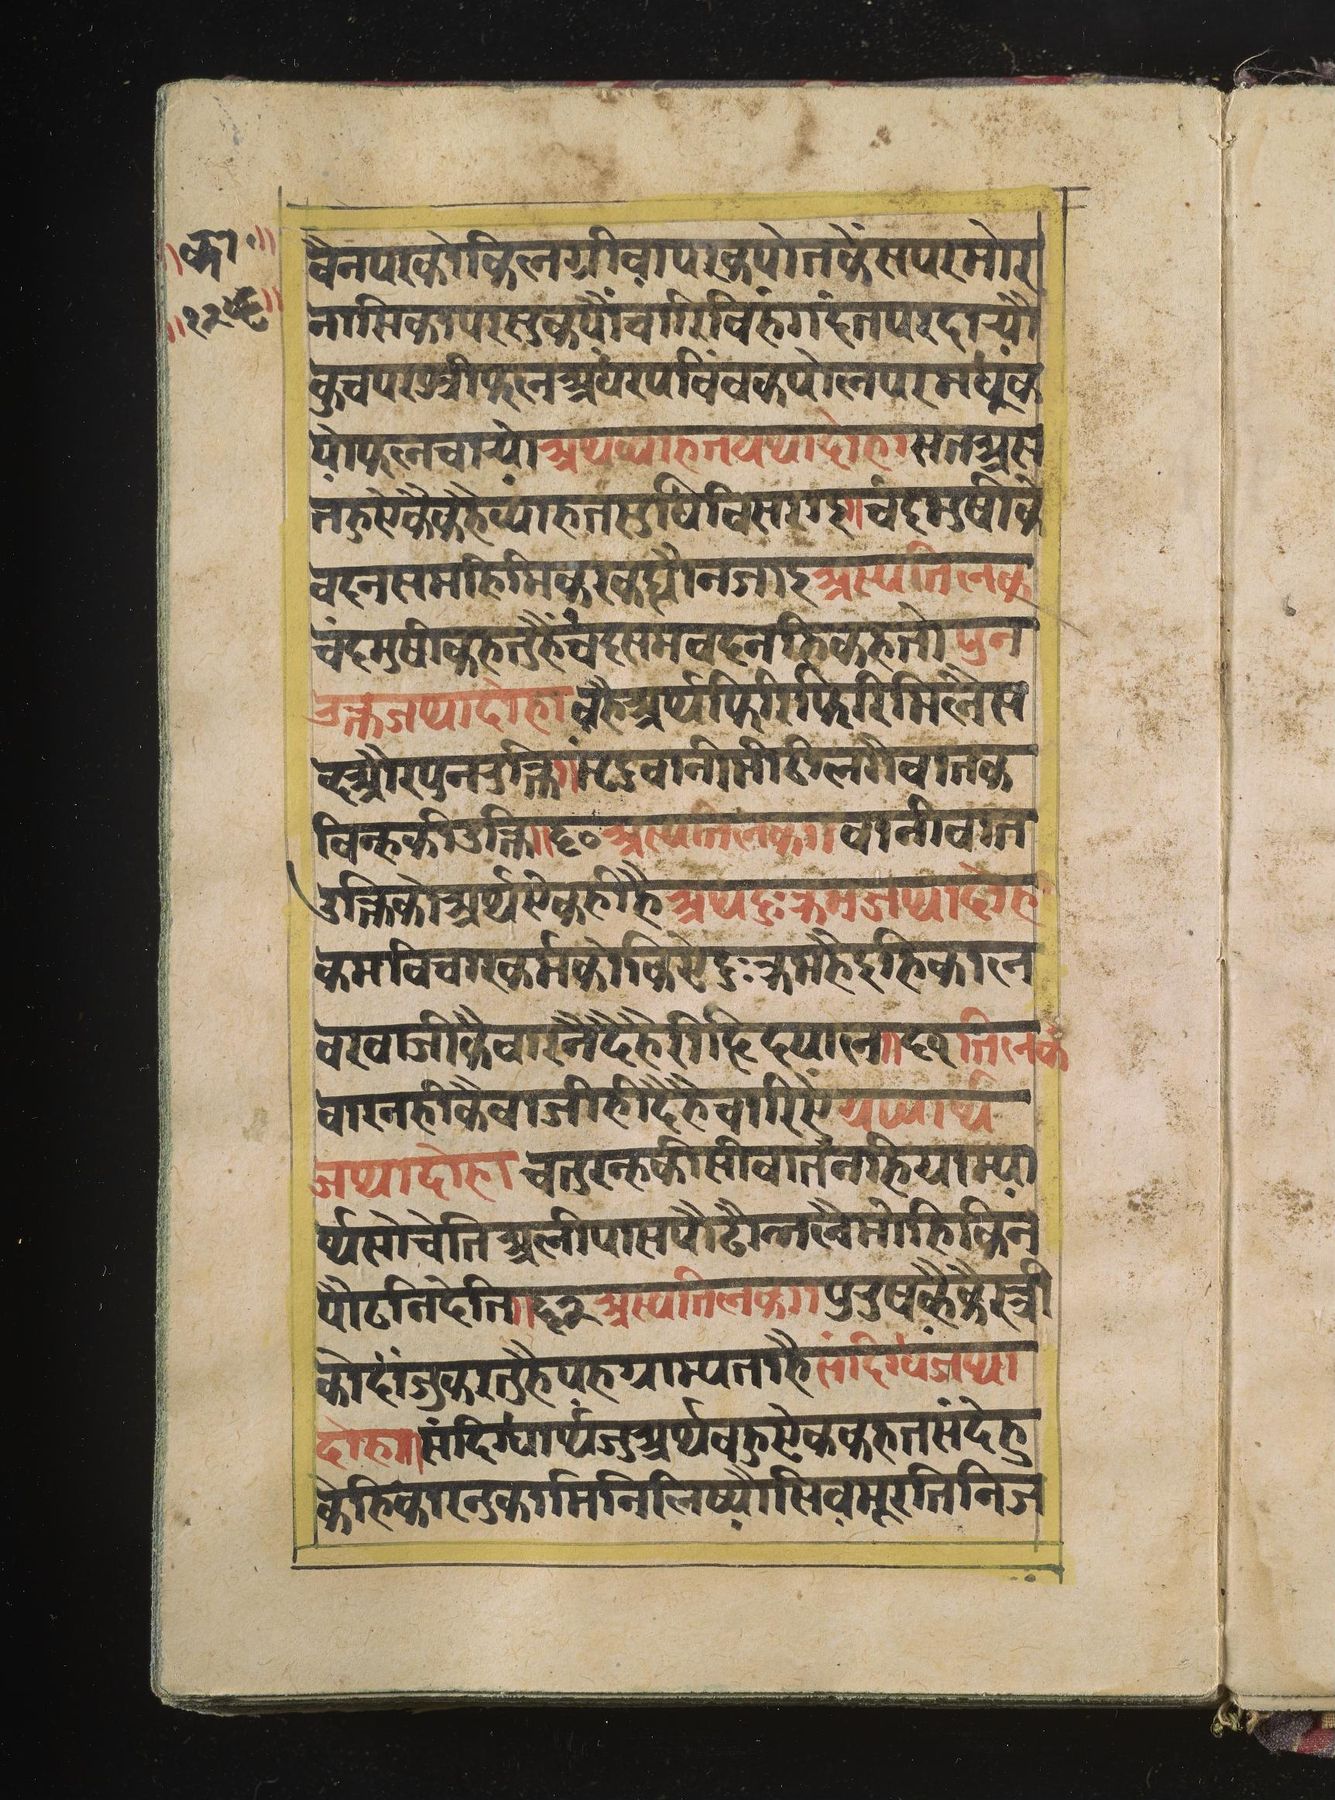 ॥का॰॥
॥२२५॥
वैनपरकोकिलग्रीवापरकपोतकेसपरमोर
नासिकापरसुकपौंचारिविहंगदंतपरदार्यौ
कुचपरश्रीफलअधरपविंवकपोलपरमधूक
येफलचार्यो अथव्याहतयथादोहा सतअस
तहुऐकैकहैव्याहतसुधिविसराइ॥चंदमुषीके
वदनसमहिमिकरकह्यौनजाइ अस्यतिलक
चंदमुषीकहतुहैंचंदसमवदनहिकहतो पुन
रुक्तजथादोहा वहैअर्थफिरिफिरिमिलैस
व्दऔरपुनरुक्ति॥मृदुवानीमीठीलगैवातक
विन्हकीउक्ति॥६०अस्यतिलक॥ वानीवात
उक्तिकोअर्थऐकहीहै अथदुःक्रमजथादोहा
क्रमविचारक्रमकोकिऐदुःक्रमहैइहिकाल
वरवाजीकैवारनैदैहैरीझिदयाल॥६१तिलक
वारनहीकैवाजीहीदैहैचारिऐ ग्राम्यार्थ
जथादोहा चतुरन्हकीसीवातनहियाम्या
र्थसोचेतिअलीपासपौढीभलैमोहिकिन
पौढनिदेति॥६२अस्यतिलक॥ पुरुषकहैकैस्त्री
कोदोजुकरतुहैपहग्राम्यताहै संदिग्धजथा
दोहा॥संदिग्धार्थजुअर्थवहुऐककहतसंदेहु
केहिकारनुकामिनिलिष्यौसिवमूरतिनिज